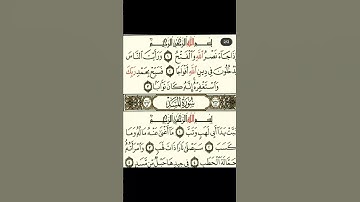 بسم الله الرحمن الرحيم
إذا جاء نصر الله والفتح ۝ ورأيت الناس
يدخلون في دين الله أفواجا ۝ فسبح بحمد ربك
واستغفره إنه كان توابا ۝
سورة المسد
بسم الله الرحمن الرحيم
تبت يدا أبي لهب وتب ۝ ما أغنى عنه ماله وما
كسب ۝ سيصلى نارا ذات لهب ۝ وامرأته
حمالة الحطب ۝ في جيدها حبل من مسد ۝